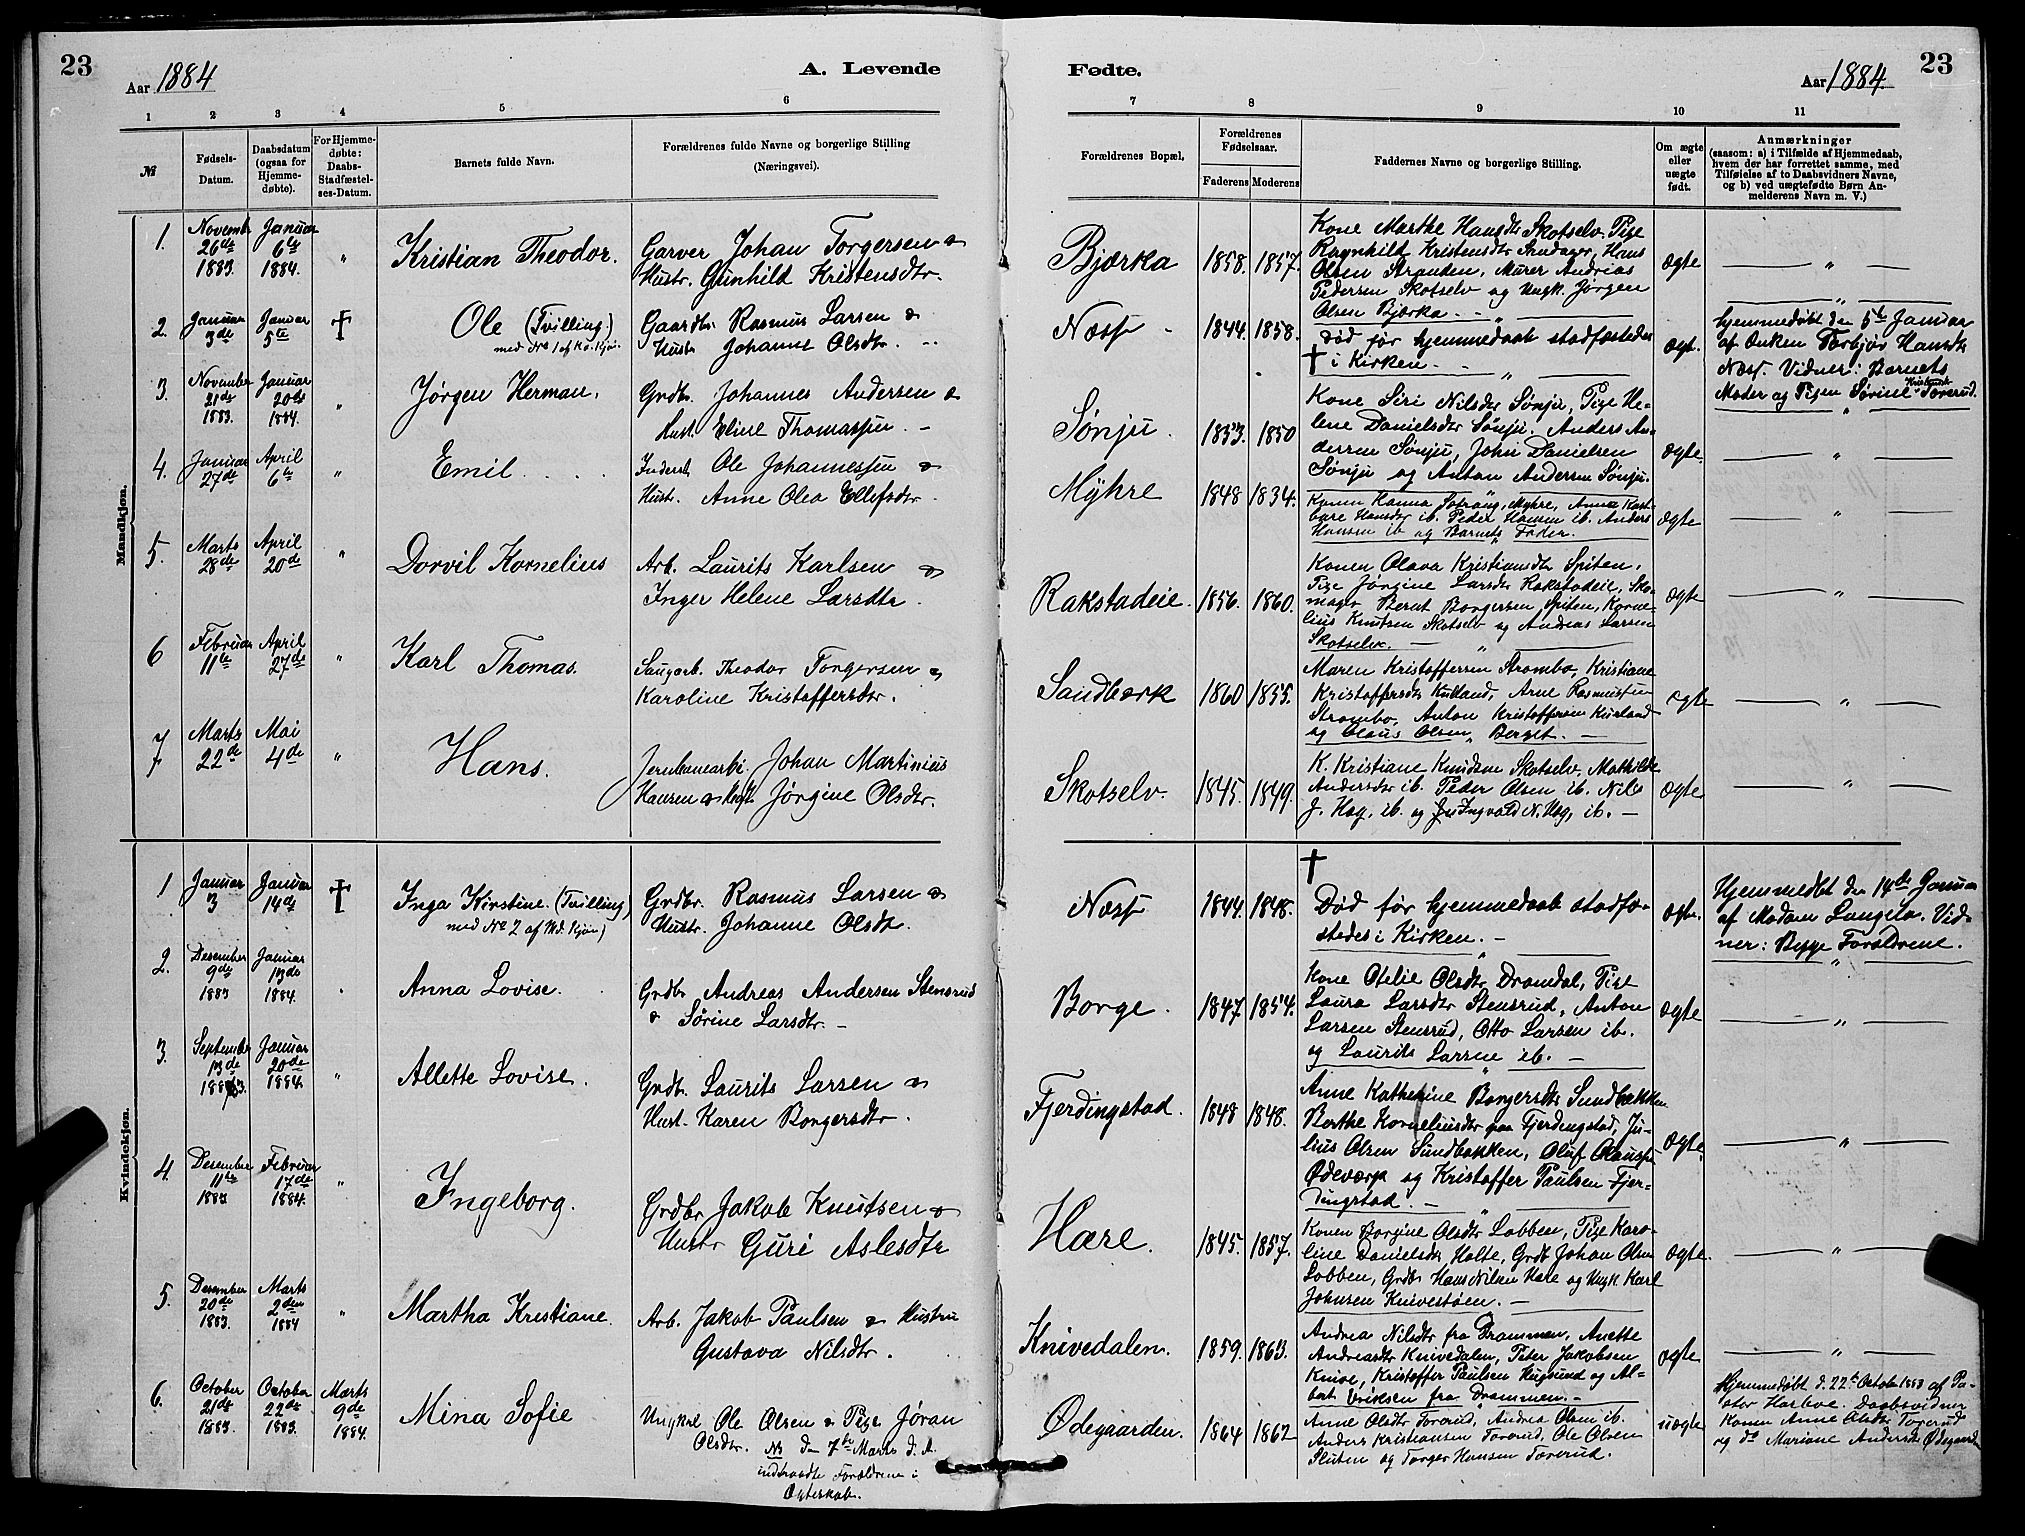 23
Aar 1884
A. Levende
1 2 3 4 5 6
No
Fødsels-
Datum.
Daabsdatum
(ogsaa for
Hjemme-
døbte).
For Hjemme-
døbte:
Daabs-
Stadfæstel-
ses-Datum.
Barnets fulde Navn.
Forældrenes fulde Navne og borgerlige Stilling
(Næringsvei).
Mandkjøn.
1. Novembr 26de 1883. Januar 6te 1884. " Kristian Theodor. Garver Johan Torgersen &
Hustr. Gunhild Kristensdtr.
2. Januar 3de Januar 5te † Ole (Tvilling.)
med No 1 af Kv. Kjøn. Gaardbr. Rasmus Larsen &
Hustr. Johanne Olsdtr.
3. November 21de 1883. Januar 20de 1884. " Jørgen Herman. Grdbr. Johannes Andersen &
Hust. Eline Thomasson
4. Januar 27de April 6te " Emil Inderst Ole Johannessen &
Hustr. Anne Olea Ellefsdtr.
5. Marts 28de April 20de " Dorvil Kornelius Arb. Laurits Karlsen &
Inger Helene Larsdtr.
6 Februar 11te April 27de " Karl Thomas. Saugarb. Theodor Torgersen &
Karoline Kristoffersdtr.
7 Marts 22de Mai 4de " Hans. Jernbanearbr. Johan Martinius
Hansen & Jørgine Olsdtr.
Kvindekjøn.
1 Januar 3 Januar 14de † Inga Kirstine. (Tvilling)
med No 2 af Md. Kjøn) Grdbr. Rasmus Larsen &
Hustr. Johanne Olsdtr.
2. Desember 9de 1883 Januar 13de 1884. Anna Lovise. Grdbr Andreas Andersen Stensrud
& Sørine Larsdtr. –
3. September 13de 1883. Januar 20de 1884. " Allette Lovise. Grdbr. Laurits Larsen &
Hust. Karen Borgersdtr.
4. Desember 11te 1883 Februar 17de 1884. " Ingeborg. Grdbr Jakob Knutsen &
Hustr Guri Aslesdtr
5. Desember 20de 1883. Marts 2den 1884 " Martha Kristiane. Arb. Jakob Paulsen & Hustru
Gustava Nilsdtr.
6. October 21de 1883. October 22de 1883. Marts 9de 1884. Mina Sofie Ungkal Ole Olsen & Pige Jøran
Olsdtr. NB den 7de Marts d. A.
indtraadte Forældrene i
Ægteskab.
23
Fødte.
Aar 1884.
7 8 9 10 11
Forældrenes Bopæl.
Forældrenes
Fødselsaar.
Faderens Moderens
Faddernes Navne og borgerlige Stilling.
Om ægte
eller
uægte
født.
Anmærkninger
(saasom: a) i Tilfælde af Hjemmedaab,
hvem der har forrettet samme, med
Tilføielse af to Daabsvidners Navne,
og b) ved uægtefødte Børn An-
melderens Navn m. V.)
Bjørka 1858. 1857. Kone Marthe Hansdtr Skotselv, Pige
Ragnhild Kristensdtr Hans
Olsen Stranden, Murer Andreas
Pedersen Skotselv og Ungk. Jørgen
Olsen Bjørka. ægte "
Næss 1844. 1858. Død før hjemmedaab stadfæstedes
† i Kirken. ægt. Hjemmedøbt den 5te Januar
af Enken Torbjør Hansdtr
Næss. Vidner: Barnets
Moder og Pigen Sørine Kristensdtr Torerud.
Sønju. 1853. 1850 Kone Siri Nilsdtr Sønju, Pige He-
lene Danielsdtr Sønju. Anders An-
dersen Sønju, John Danielsen
Sønju og Anton Andersen Sønju. ægte. "
Myhre 1848 1834. Konen Hanna Myhre, Anne
Hansdtr ib. Peder Hansen ib. Anders
Hansen ib og Barnets Fader. ægte "
Rakstadeie. 1856. 1860. Konen Olava Kristiansdtr Spiten,
Pige Jørgine Larsdtr Rakstadeie, Sko-
mager Bernt Borgersen Spiten, Korne-
lius Knutsen Skotselv og Andreas Larsen
Skotselv. ægte "
Sandbærk 1860 1855. Maren Kristoffersen Strømbo, Kristiane
Kristoffersdtr Kurland, Arne Rasmussen
Strømbo, Anton Kristoffersen Kurland
og Olaus Olsen, Berget. ægte "
Skotselv. 1845. 1849. K. Kristiane Knudsen Skotselv, Mathilde
Andersdtr ib. Peder Olsen ib. Nils
J. Hog. ib. og Ingvald N. Hog, ib. ægte "
Næss 1844. 1848. †
Død før hjemmedaab stadfæ-
stedes i Kirken. ægte. Hjemmedbt den 14de Januar
af Madam Langela. Vid-
ner: Begge Forældrene.
Borge. 1847. 1854. Kone Otelie Olsdtr Dramdal, Pige
Laura Larsdtr Stensrud, Anton
Larsen Stensrud, Otto Larsen ib.
og Laurits Larsen ib. ægte "
Fjerdingstad. 1848 1848. Anne Kathrine Borgersdtr Sundbakken
Berthe Korneliusdtr paa Fjerdingstad, Ju-
lius Olsen Sundbakken, Oluf
Ødeværk og Kristoffer Paulsen Fjer-
dingstad. ægte. "
Hære. 1845. 1857. Konen Borgine Olsdtr Lobben, Pige Karo-
line Danielsdtr Holte, Grdbr Johan Olsen
Lobben, Grdbr Hans Nilsen Hære og Ungk. Karl
Johnsen Knivestøen. ægte. "
Knivedalen. 1859. 1863. Andrea Nilsdtr fra Drammen, Anette
Andreasdtr Knivedalen, Peter Jakobsen
Knive, Kristoffer Paulsen Hugsund og Al-
bert Eriksen fra Drammen. ægte "
Ødegaarden. 1864 1862 Anne Olsdtr Torerud, Andrea Olsen ib.
Anders Kristiansen Torerud, Ole Olsen
Sluten og Torger Hansen Torerud. uægte Hjemmedøbt d. 22de Octobr 1883 af Pa-
stor Daabsvidner
Konen Anne Olsdtr Torerud
og do Mariane Andersdtr Ødegaarden